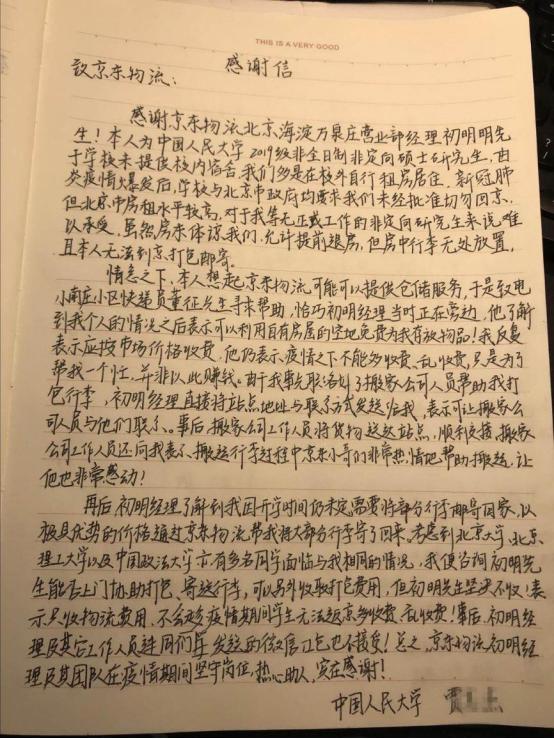 THIS IS A VERY GOOD
感谢信
致京东物流：
感谢京东物流北京海淀万泉庄营业部经理初明明先
生！本人为中国人民大学2019级非全日制非定向硕士研究生，由
于学校未提供校内宿舍，我们多是在校外自行租房居住。新冠肺
炎疫情爆发后，学校与北京市政府均要求我们未经批准切勿回京，
但北京市房租水平较高，对于我等无正式工作的非定向研究生来说难
以承受，虽然房东体谅我们，允许提前退房，但房中行李无处放置，
且本人无法到京打包邮寄。
情急之下，本人想起京东物流可能可以提供仓储服务，于是致电
小南庄小区快递员董征先生寻求帮助，恰巧初明经理当时正在旁边，他了解
到我个人的情况之后表示可以利用自有房屋的空地免费为我存放物品！我反复
表示应按市场价格收费，他仍表示疫情之下不能多收费、乱收费，只是为了
帮我一个忙，并非以此赚钱。由于我事先联络到了搬家公司人员帮助我打
包行李，初明经理直接将站点地址与联系方式发送给我，表示可让搬家公
司人员与他们联系。事后，搬家公司工作人员将货物送达站点，顺利交接，搬家
公司工作人员还向我表示，搬运行李过程中京东小哥们非常热情地帮助搬运，让
他也非常感动！
再后，初明经理了解到我因开学时间仍未定需要将部分行李邮寄回家，以
极具优势的价格通过京东物流帮我将大部分行李寄了回来。考虑到北京大学、北京
理工大学以及中国政法大学亦有多名同学面临与我相同的情况，我便咨询初明先
生能否上门协助打包、寄送行李，可以另外收取打包费用，但初明先生坚决不收！表
示只收物流费用，不会趁疫情期间学生无法返京多收费、乱收费！事后，初明经
理及其它工作人员连同学们发送的微信红包也不接受！总之，京东物流初明经
理及其团队在疫情期间坚守岗位，热心助人，实在感谢！
中国人民大学 贾